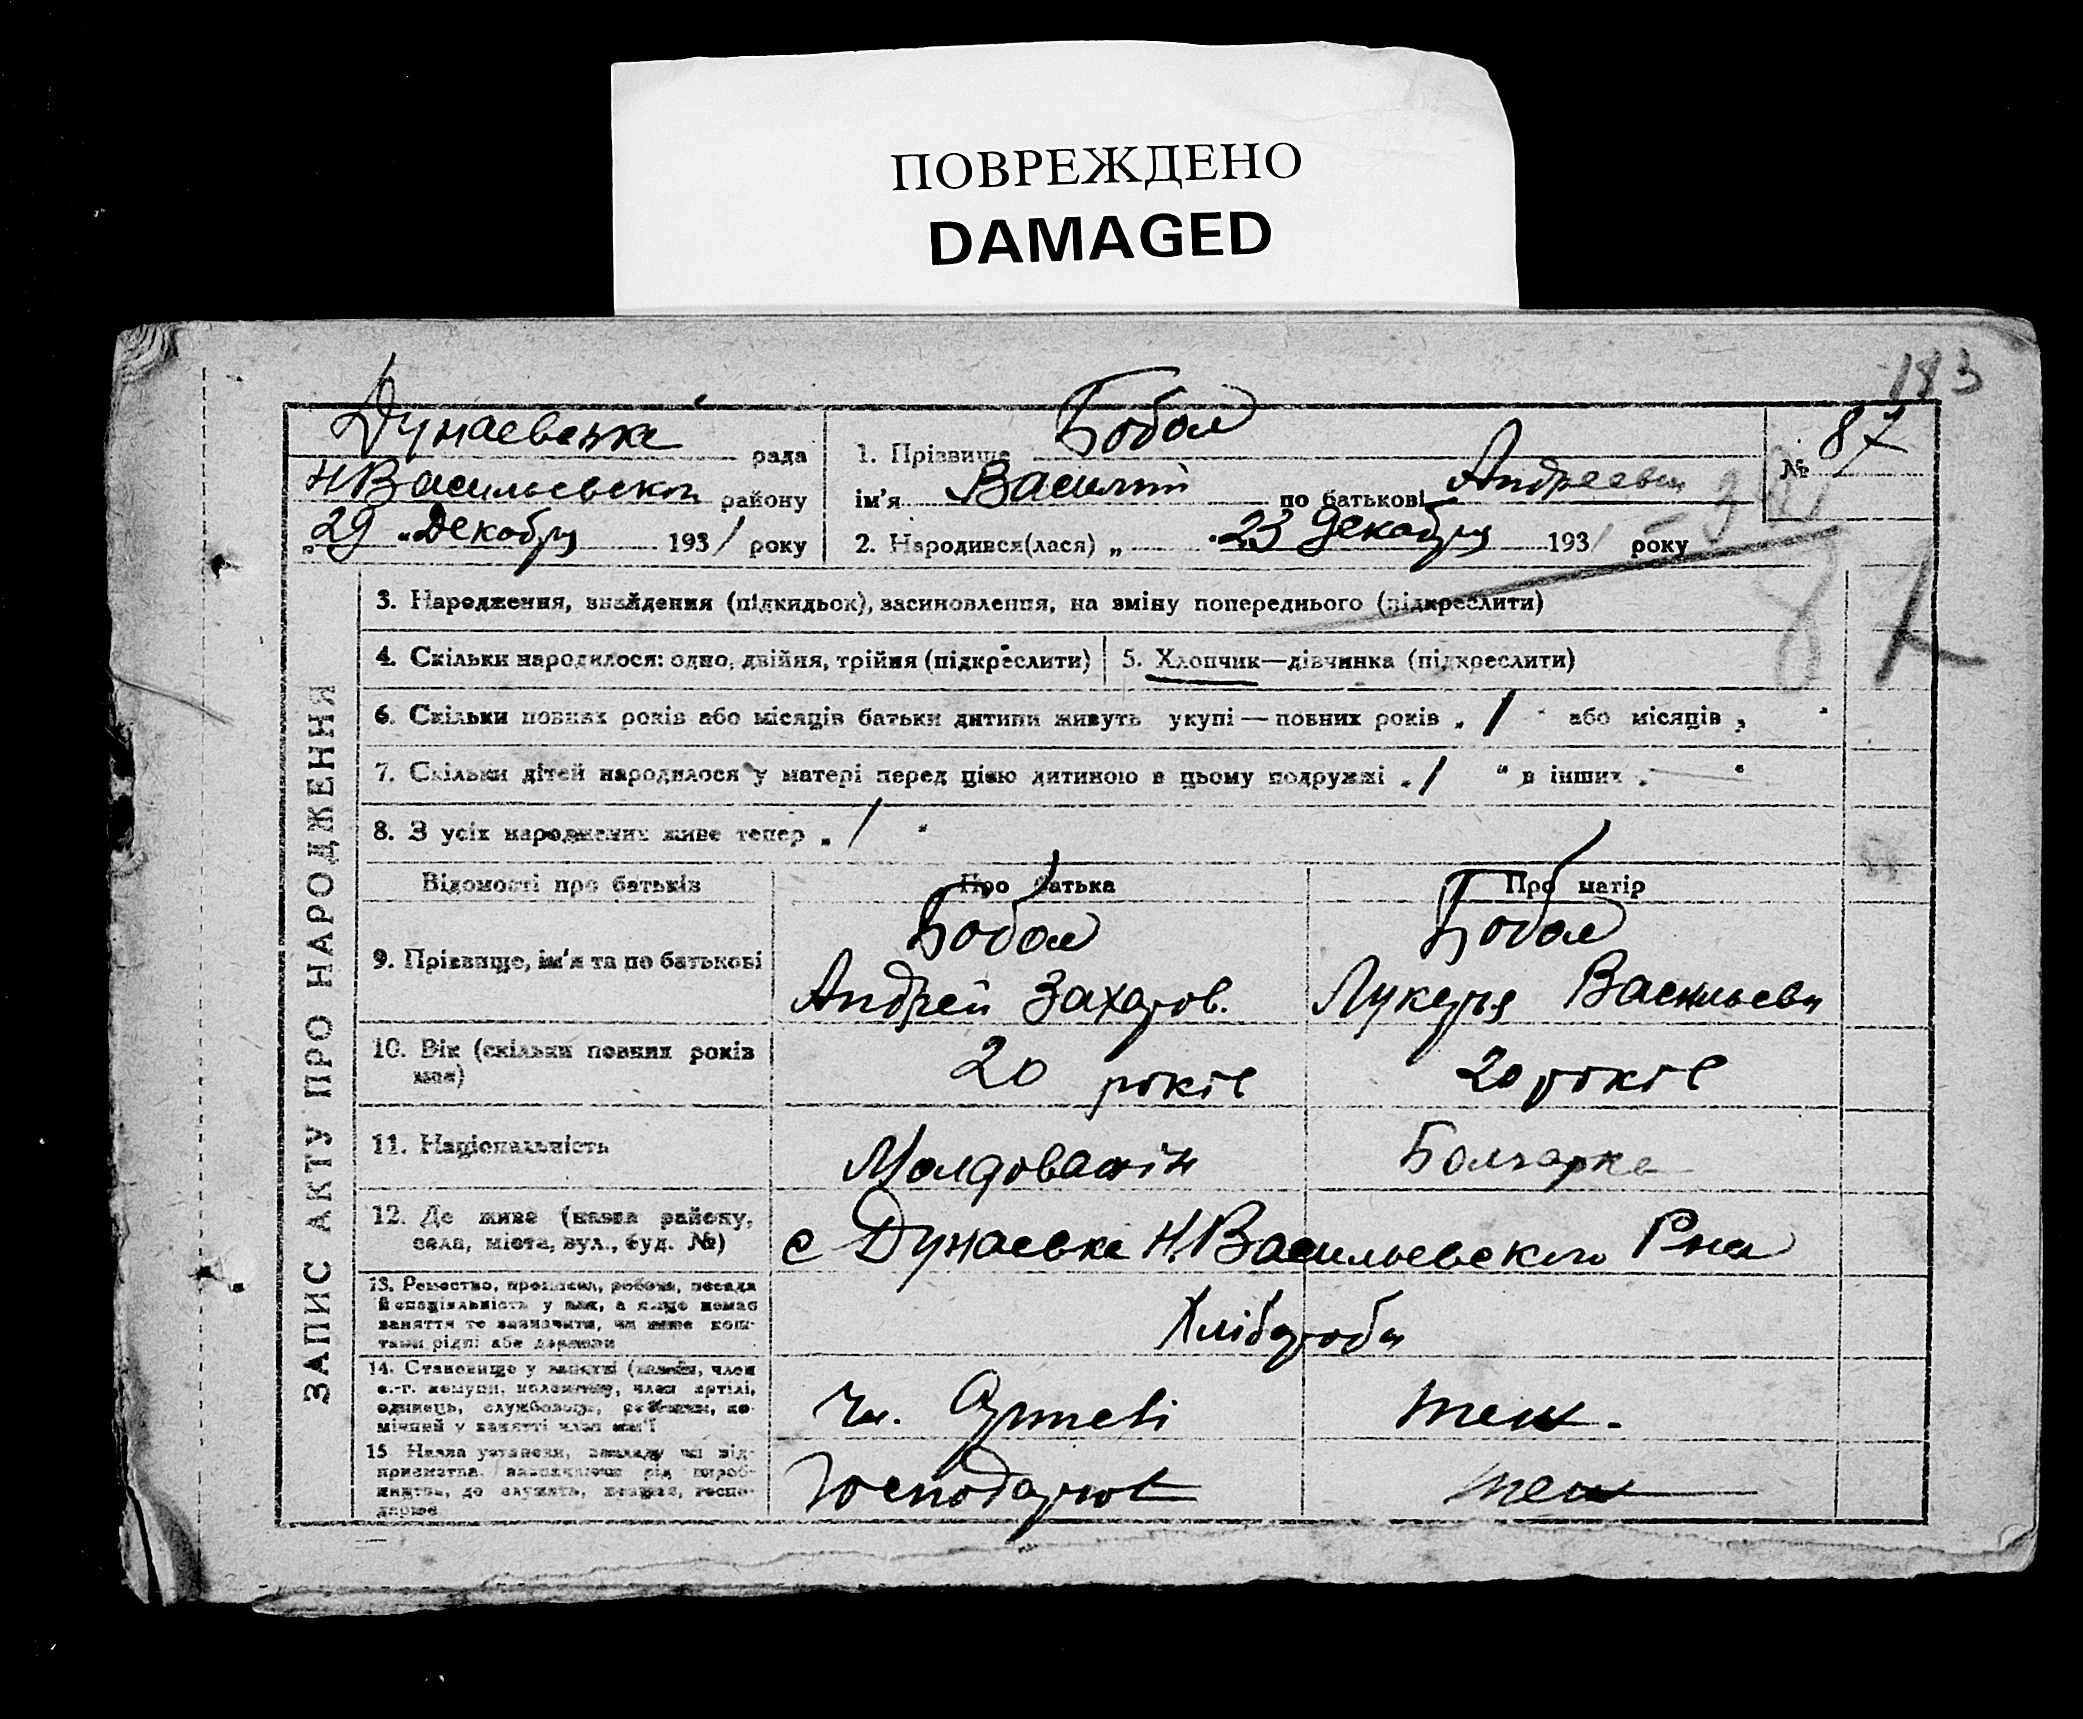 ПОВРЕЖДЕНО
DAMAGED
183
Дунаевська рада
НВасильевског району
"29" Декабря 1931 року
1. Прізвище Бобол
ім'я Василий по батькові Андреевич
2. Народився(лася) „ 23 Декабря 1931 року
№ 87
87
ЗАПИС АКТУ ПРО НАРОДЖЕННЯ
3. Народження, знайдення (підкидьок), засиновлення, на зміну попереднього (підкреслити)
4. Скільки народилося: одно, двійня, трійня (підкреслити)
5. Хлопчик—дівчинка (підкреслити)
6. Скільки повних років або місяців батьки дитини живуть укупі — повних років „ 1 " або місяців „ "
7. Скільки дітей народилося у матері перед цією дитиною в цьому подружжі „ 1 " в інших „ — "
8. З усіх народжених живе тепер „ 1 "
Відомості про батьків
Про батька
Про матір
9. Прізвище, ім'я та по батькові
Бобол
Андрей Захаров.
Бобол
Лукерья Васильевн
10. Вік (скільки повних років має)
20 років
20 років
11. Національність
Молдованін
Болгарка
12. Де живе (назва району, села, міста, вул., буд. №)
с Дунаевка Н.Васильевского Рна
13. Ремество, промисел, робота, посада й спеціяльність у них, а якщо немає заняття то зазначити, чи живе коштами рідні або держави
Хлібороби
14. Становище у занятті (
член с.-г. комуни, колективу, член артілі, одинець, службовець, робітник, помічний у занятті член сім'ї
Чл. Артелі
теж.
15. Назва установи, закладу чи підприємства, зазначаючи рід виробництва, де служить, працює, господарює
Господарюют
теж